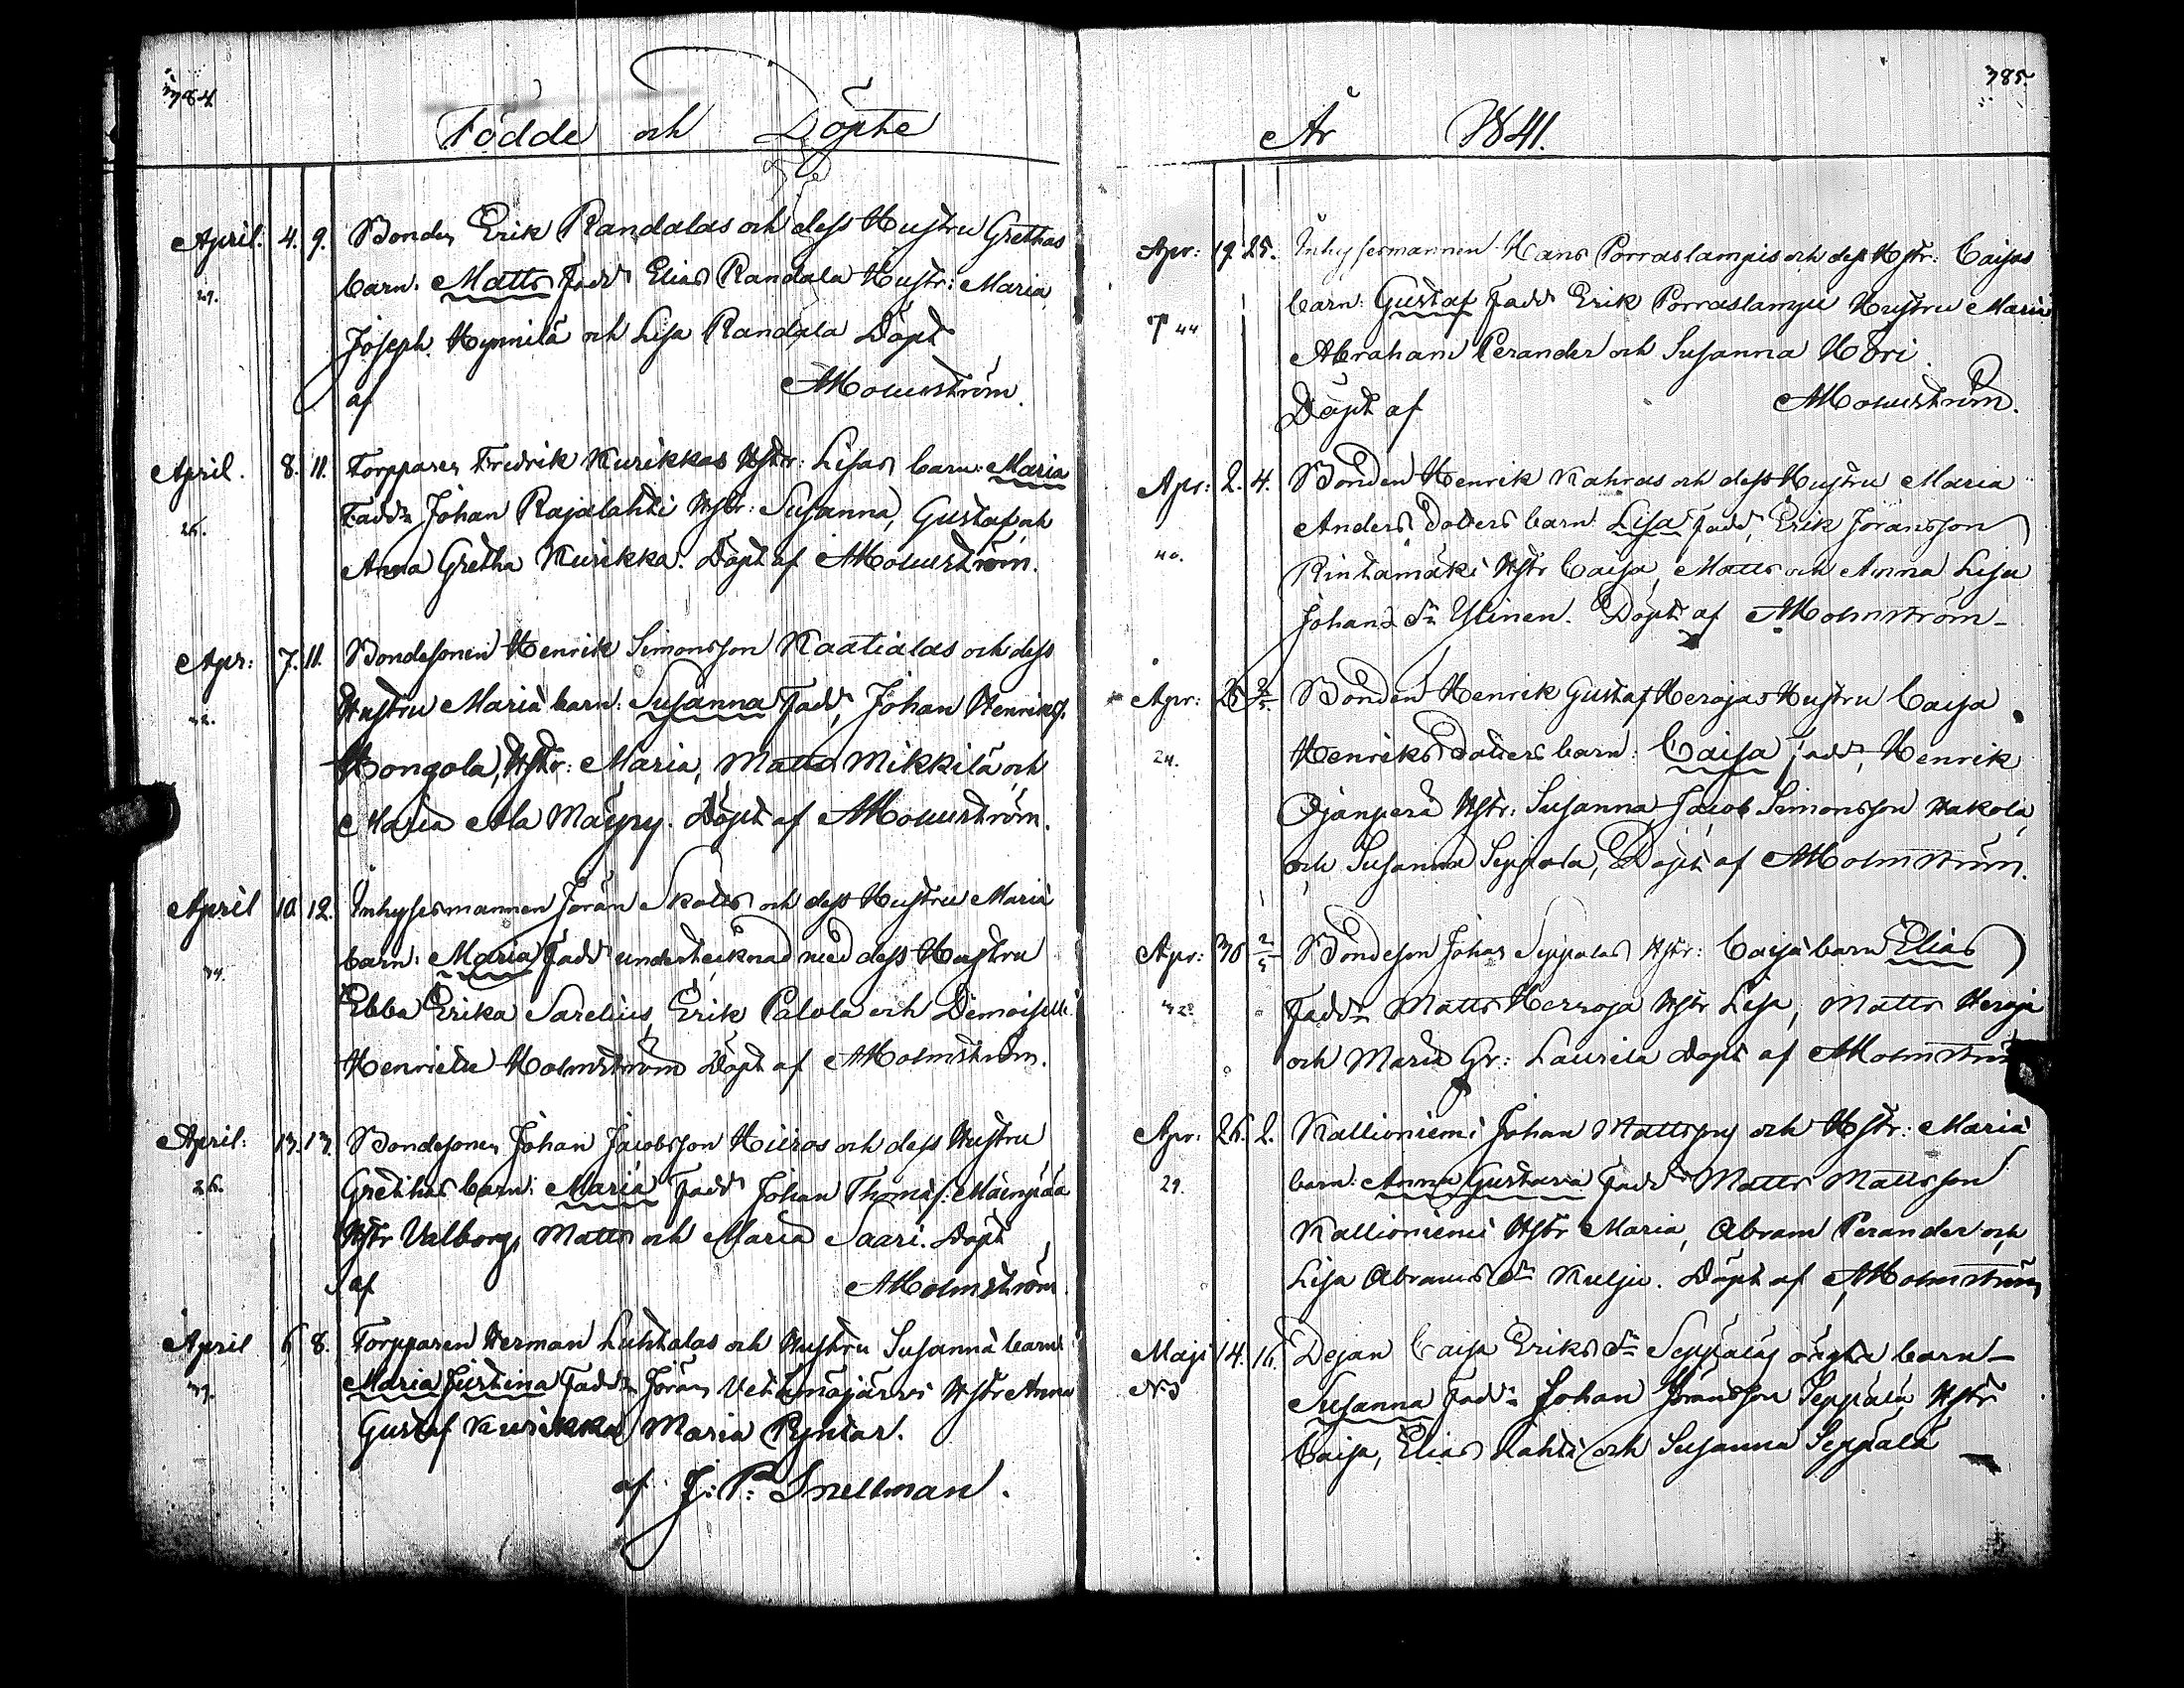 384
Födde och Döpte
April. 4. 9. Bonden Erik Randalas och dess Hustru Grethas
29. barn. Matts Fadd Elias Randala Hustr: Maria
Joseph Hynnilä och Lisa Randala Döpt
af AHolmström.
April. 8. 11. Torpparen Fredrik Kurikkas Hstr: Lisas barn: Maria
26. Fadd: Johan Rajalahti Hstr: Susanna, Gustaf och
Anna Gretha Kurikka. Döpt af AHolmström.
Apr: 7. 11. Bondesonen Henrik Simonsson Kaatialas och dess
32. Hustru Mariä barn: Susanna Fadd, Johan Henrikss.
Hongola, Hstr: Maria, Matts Mikkilä och
Maria Ala Mäyry. Döpt af AHolmström.
April 10 12. Inhysesmannen Jöran Skotts och dess Hustru Mariä
34. barn: Maria Fadd undertecknad med dess Hustru
Ebba Erika Sarelius, Erik Palola och Demoiselle
Henriette Holmström Döpt af AHolmström.
April: 13. 13. Bondesonen Johan Jacobsson Hiiros och dess Hustru
26. Grethas barn: Maria Fadd Johan Thomæs: Mäenpää
Hstr Valborg, Matts och Maria Saari. Döpt
af AHolmström.
April 6 8. Torpparen Herman Luhtalas och Hustru Susannä barn
39. Maria Justina Fadd: Jöran Vetämäjärvi Hstr Anna
Gustaf Kurikka Maria Pyntar.
af J: P: Snellman.
385.
År 1841.
Apr: 19. 25. Inhysesmannen Hans Porraslampis och dess Hstr: Caisas
44 barn: Gustaf Fadd Erik Porraslampi Hustru Maria
Abraham Perander och Susanna Hori.
Döpt af AHolmström.
Apr: 2. 4. Bonden Henrik Kahras och dess Hustru Maria
40. Anders dotters barn: Lisa Fadd, Erik Jöransson
Rintamäki Hstr Caisa, Matts och Anna Lisa
Johans dr Ylinen. Döpt af AHolmström
Apr: 25 2/5 Bonden Henrik Gustaf Herajas Hustru Caisa
24. Henriks dotters barn: Caisa Fadd, Henrik
Ojanperä Hstr: Susanna, Jacob Simonsson Hakola,
och Susanna Seppälä, Döpt af AHolmström.
Apr: 30 2/5 Bondeson Johan Seppälas Hstr: Caisä barn Elias
32 Fadd: Matts Herroja Hstr Lisa, Matts Heroja
och Maria Gr: Laurila Döpt af AHolmström
Apr: 26. 2. Kallioniemi Johan Mattsson och Hstr: Mariä
29. barn: Anna Gustava Fadd Matts Mattsson
Kallioniemi Hstr Maria, Abram Perander och
Lisa Abrams dr Kulju. Döpt af AHolmström
Maji 14. 16. Dejan Caisa Eriks dr Seppäläs oägta barn
No 3 Susanna Fadd: Johan Jöransson Seppälä Hstr
Caisa, Elias Lahti och Susanna Seppälä